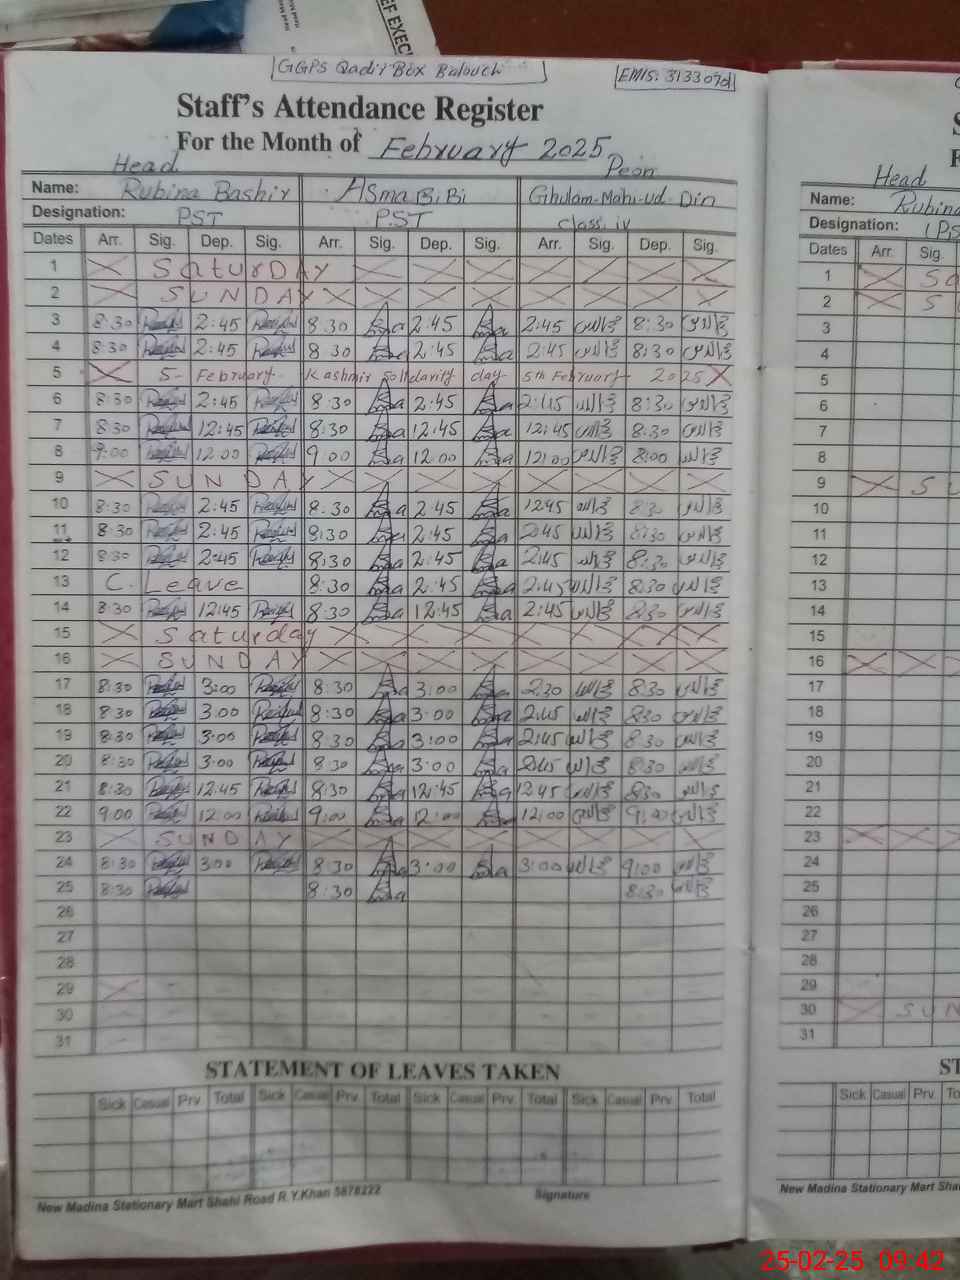 EF EXEC
GGPS Qadir Box Balouch EMIS: 3133079
Staff's Attendance Register
For the Month of February 2025
Head Peon
Name: Rubina Bashir ASma BiBi Ghulam-Mohi-ud-Din
Designation: PST PST Class iv
Dates Arr. Sig. Dep. Sig. Arr. Sig. Dep. Sig. Arr. Sig. Dep. Sig.
1 SaturDAY
2 SUNDAY
3 8:30 2:45 8:30 2:45 2:45 8:30
4 8:30 2:45 8:30 2:45 2:45 8:30
5 5- February Kashmir Solidarity day 5th February 2025
6 8:30 2:45 8:30 2:45 2:45 8:30
7 8:30 12:45 8:30 12:45 12:45 8:30
8 9:00 12:00 9:00 12:00 12:00 8:00
9 SUNDAY
10 8:30 2:45 8:30 2:45 1245 8:30
11 8:30 2:45 8:30 2:45 2:45 8:30
12 8:30 2:45 8:30 2:45 2:45 8:30
13 C. Leave 8:30 2:45 2:45 8:30
14 8:30 12:45 8:30 12:45 2:45 8:30
15 Saturday
16 SUNDAY
17 8:30 3:00 8:30 3:00 2:30 8:30
18 8:30 3:00 8:30 3:00 2:45 8:30
19 8:30 3:00 8:30 3:00 2:45 8:30
20 8:30 3:00 8:30 3:00 2:45 8:30
21 8:30 12:45 8:30 12:45 12:45 8:30
22 9:00 12:00 9:00 12:00 12:00 9:00
23 SUNDAY
24 8:30 3:00 8:30 3:00 3:00 9:00
25 8:30 8:30 8:30
26
27
28
29
30
31
STATEMENT OF LEAVES TAKEN
Sick Casual Prv Total Sick Casual Prv. Total Sick Casual Prv. Total Sick Casual Prv. Total
New Madina Stationary Mart Shahi Road R.Y.Khan 5878222 Signature
Head
Name: Rubina
Designation:
Dates Arr. Sig.
1 Sa
2 S
3
4
5
6
7
8
9 SU
10
11
12
13
14
15
16
17
18
19
20
21
22
23
24
25
26
27
28
29
30 SUN
31
ST
Sick Casual Prv. To
New Madina Stationary Mart Sha
25-02-25 09:42